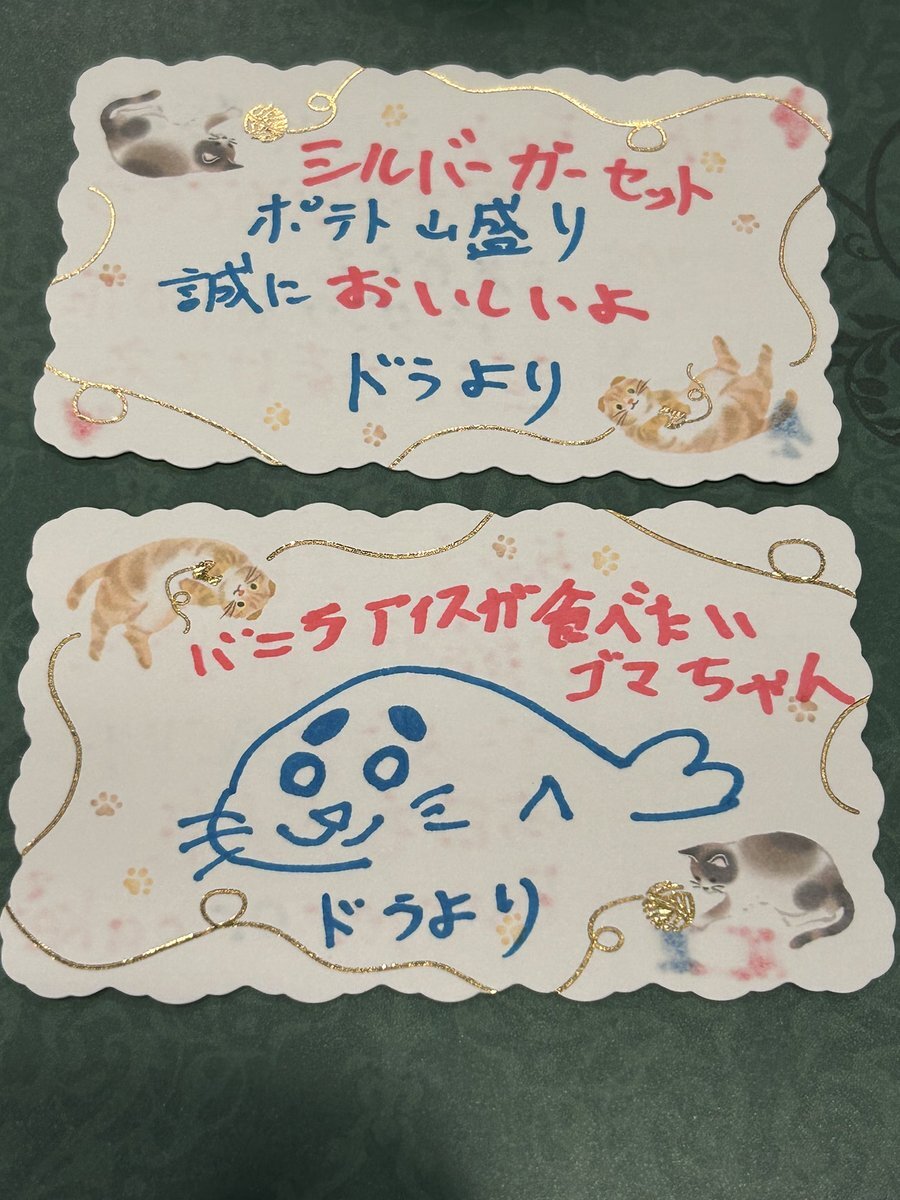 シルバーガーセット
ポテト山盛り
誠においしいよ
ドラより
バニラアイスが食べたい
ゴマちゃん
ドラより